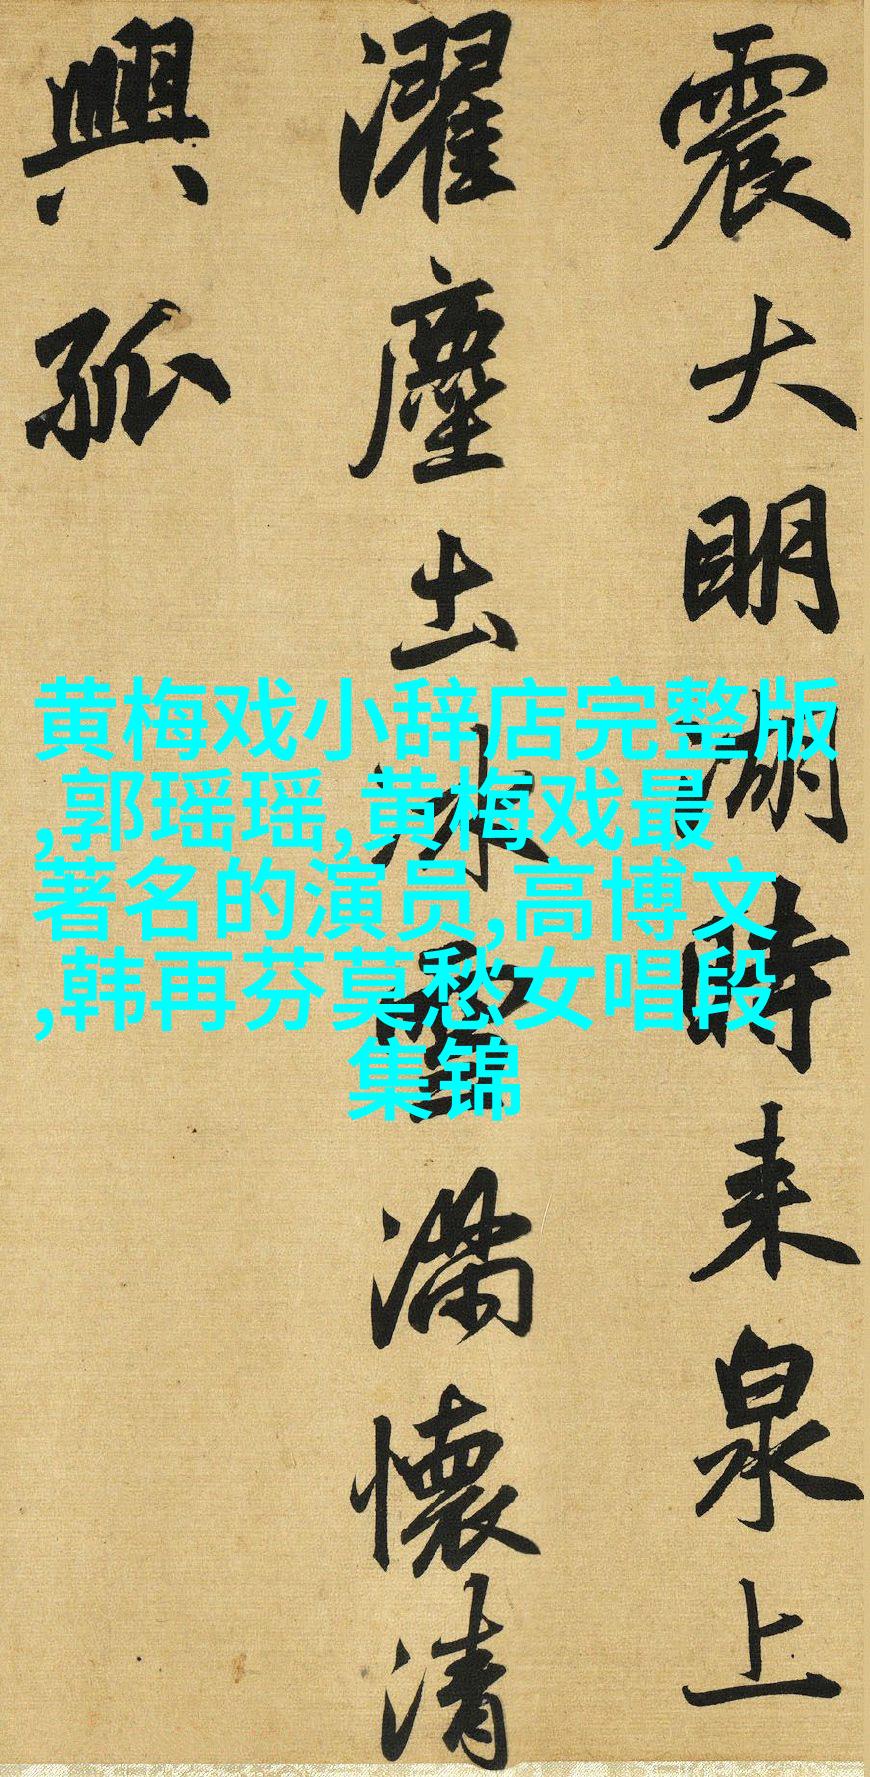 震大明湖時来泉上
濯塵土冰雪滿懷清
興孤
黄梅戏小辞店完整版
,郭瑶瑶,黄梅戏最
著名的演员,高博文
,韩再芬莫愁女唱段
集锦